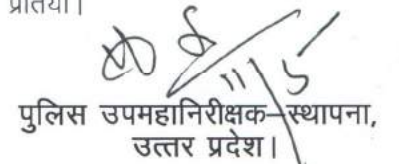 प्रतियां।
11/5
पुलिस उपमहानिरीक्षक–स्थापना,
उत्तर प्रदेश।